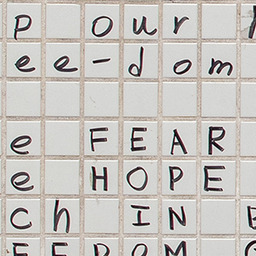 p our
ee-dom
e FEAR
e HOPE
ch IN
EEDOM